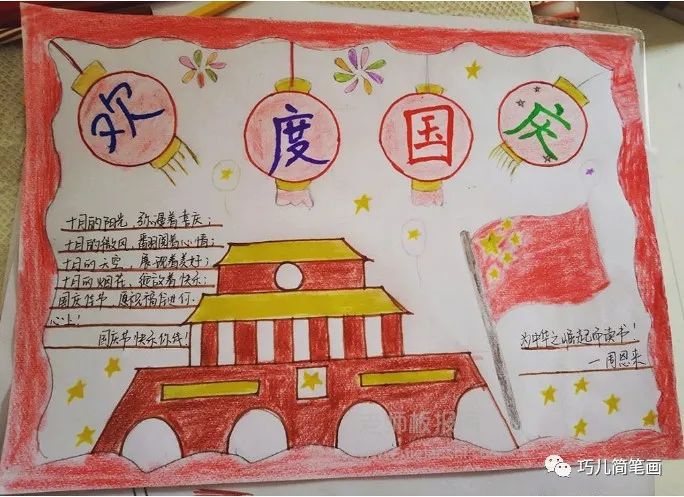 欢度国庆
十月的阳光，弥漫着喜庆；
十月的微风，翻阅着心情；
十月的天空，展现着美好；
十月的烟花，绽放着快乐；
国庆佳节，愿祝福与进行，
心上！
国庆节快乐你伴！
为中华之崛起而读书！
—周恩来
老师板报网
巧儿简笔画